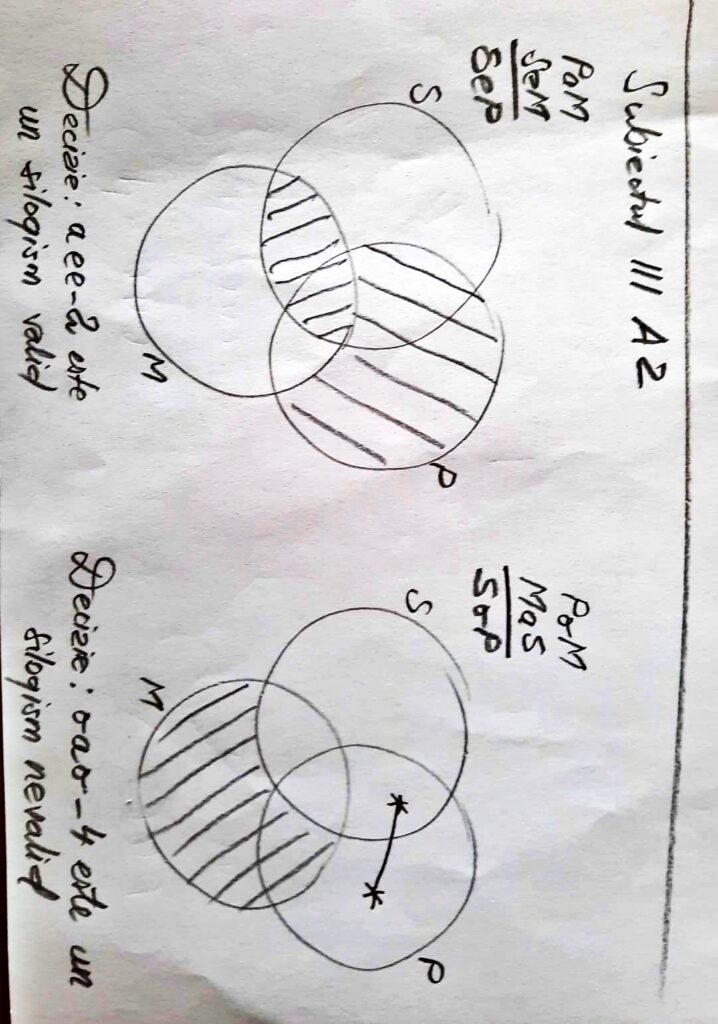 Subiectul III A2
PaM
SeM
SeP
S
P
M
Decizie: aee-2 este
un silogism valid
PoM
MaS
SoP
S
P
M
Decizie: oao-4 este un
silogism nevalid